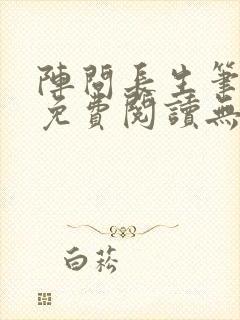 陣問長生筆
免費閱讀無
白菘